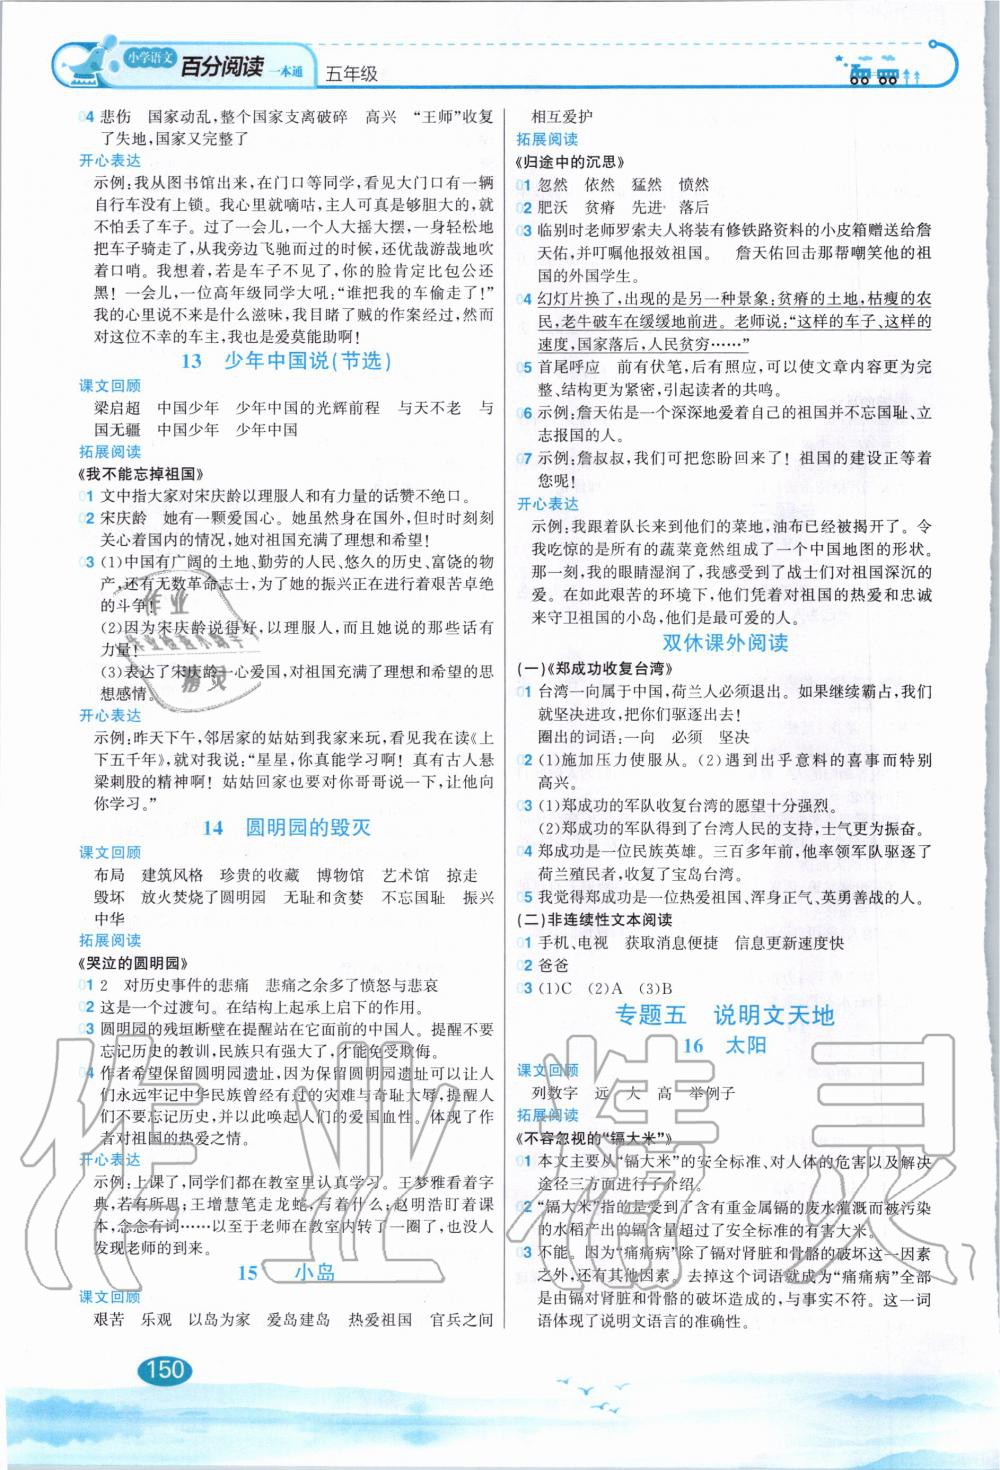 小学语文 百分阅读 一本通 五年级
04 悲伤　国家动乱,整个国家支离破碎　高兴　“王师”收复
了失地,国家又完整了
开心表达
示例:我从图书馆出来,在门口等同学,看见大门口有一辆
自行车没有上锁。我心里就嘀咕,主人可真是够胆大的,就
不怕丢了车子。过了一会儿,一个人大摇大摆、一身轻松地
把车子骑走了,从我旁边飞驰而过的时候,还优哉游哉地吹
着口哨。我想着,若是车子不见了,你的脸肯定比包公还
黑！一会儿,一位高年级同学大吼:“谁把我的车偷走了!”
我的心里说不来是什么滋味,我目睹了贼的作案经过,然而
对这位不幸的车主,我也是爱莫能助啊!
13　少年中国说(节选)
课文回顾
梁启超　中国少年　少年中国的光辉前程　与天不老　与
国无疆　中国少年　少年中国
拓展阅读
《我不能忘掉祖国》
01 文中指大家对宋庆龄以理服人和有力量的话赞不绝口。
02 宋庆龄　她有一颗爱国心。她虽然身在国外,但时时刻刻
关心着国内的情况,她对祖国充满了理想和希望!
03 (1)中国有广阔的土地、勤劳的人民、悠久的历史、富饶的物
产,还有无数革命志士,为了她的振兴正在进行着艰苦卓绝
的斗争!
(2)因为宋庆龄说得好,以理服人,而且她说的那些话有
力量!
(3)表达了宋庆龄一心爱国,对祖国充满了理想和希望的思
想感情。
开心表达
示例:昨天下午,邻居家的姑姑到我家来玩,看见我在读《上
下五千年》,就对我说:“星星,你真能学习啊！真有古人悬
梁刺股的精神啊！姑姑回家也要对你哥哥说一下,让他向
你学习。”
14　圆明园的毁灭
课文回顾
布局　建筑风格　珍贵的收藏　博物馆　艺术馆　掠走
毁坏　放火焚烧了圆明园　无耻和贪婪　不忘国耻　振兴
中华
拓展阅读
《哭泣的圆明园》
01 2　对历史事件的悲痛　悲痛之余多了愤怒与悲哀
02 这是一个过渡句。在结构上起承上启下的作用。
03 圆明园的残垣断壁在提醒站在它面前的中国人。提醒不要
忘记历史的教训,民族只有强大起来,才能免受欺侮。
04 作者希望保留圆明园遗址,因为保留圆明园遗址可以让人
们永远牢记中华民族曾经有过的灾难与奇耻大辱,提醒人
们不要忘记历史,并以此唤起人们的爱国血性。体现了作
者对祖国的热爱之情。
开心表达
示例:上课了,同学们都在教室里认真学习。王梦雅看着字
典,若有所思;王增慧笔走龙蛇,写着什么;赵明浩盯着课
本,念念有词……以至于老师在教室内转了一圈了,也没人
发现老师的到来。
15　小岛
课文回顾
艰苦　乐观　以岛为家　爱岛建岛　热爱祖国　官兵之间
150
相互爱护
拓展阅读
《归途中的沉思》
01 忽然　依然　猛然　愤然
02 肥沃　贫瘠　先进　落后
03 临别时老师罗索夫人将装有修铁路资料的小皮箱赠送给詹
天佑,并叮嘱他报效祖国。　詹天佑回击那帮嘲笑他的祖
国的外国学生。
04 幻灯片换了,出现的是另一种景象:贫瘠的土地,枯瘦的农
民,老牛破车在缓缓地前进。老师说:“这样的车子、这样的
速度,国家落后,人民贫穷……”
05 首尾呼应　前有伏笔,后有照应,可以使文章内容更为完
整、结构更为紧密,引起读者的共鸣。
06 示例:詹天佑是一个深深地爱着自己的祖国并不忘国耻、立
志报国的人。
07 示例:詹叔叔,我们可把您盼回来了！祖国的建设正等着
您呢!
开心表达
示例:我跟着队长来到他们的菜地,油布已经被揭开了。令
我吃惊的是所有的蔬菜竟然组成了一个中国地图的形状。
那一刻,我的眼睛湿润了,我感受到了战士们对祖国深沉的
爱。在如此艰苦的环境下,他们凭着对祖国的热爱和忠诚
来守卫祖国的小岛,他们是最可爱的人。
双休课外阅读
(一)《郑成功收复台湾》
01 台湾一向属于中国,荷兰人必须退出。如果继续霸占,我们
就坚决进攻,把你们驱逐出去!
圈出的词语:一向　必须　坚决
02 (1)施加压力使服从。(2)遇到出乎意料的喜事而特别
高兴。
03 (1)郑成功的军队收复台湾的愿望十分强烈。
(2)郑成功的军队得到了台湾人民的支持,士气更为振奋。
04 郑成功是一位民族英雄。三百多年前,他率领军队驱逐了
荷兰殖民者,收复了宝岛台湾。
05 我觉得郑成功是一位热爱祖国、浑身正气、英勇善战的人。
(二)非连续性文本阅读
01 手机、电视　获取消息便捷　信息更新速度快
02 爸爸
03 (1)C　(2)A　(3)B
专题五　说明文天地
16　太阳
课文回顾
列数字　远　大　高　举例子
拓展阅读
《不容忽视的“镉大米”》
01 本文主要从“镉大米”的安全标准、对人体的危害以及解决
途径三方面进行了介绍。
02 “镉大米”指的是受到了含有重金属镉的废水灌溉而被污染
的水稻产出的镉含量超过了安全标准的有害大米。
03 不能。因为“痛痛病”除了镉对肾脏和骨骼的破坏这一原因
外,还有其他因素。去掉这个词语就成为“痛痛病”全部
是由镉对肾脏和骨骼的破坏造成的,与实际不符。这一词
语体现了说明文语言的准确性。